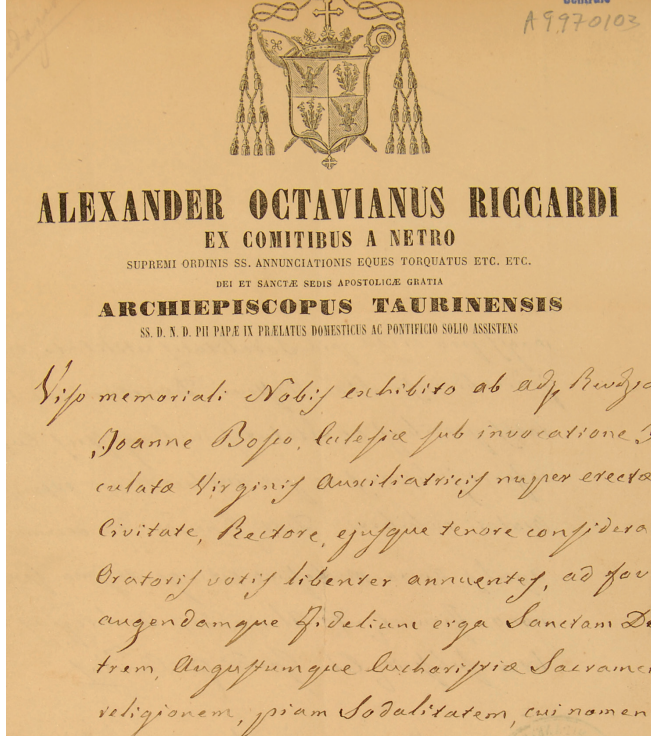 A9970103
ALEXANDER OCTAVIANUS RICCARDI
EX COMITIBUS A NETRO
SUPREMI ORDINIS SS. ANNUNCIATIONIS EQUES TORQUATUS ETC. ETC.
DEI ET SANCTÆ SEDIS APOSTOLICÆ GRATIA
ARCHIEPISCOPUS TAURINENSIS
SS. D. N. D. PII PAPÆ IX PRÆLATUS DOMESTICUS AC PONTIFICIO SOLIO ASSISTENS
Viso memoriali Nobis exhibito ab
Joanne Bosco, Eclesiæ sub invocatione
culatæ Virginis Auxiliatricis nuper erectæ
Civitate, Rectore, ejusque tenore considera
Oratoris votis libenter annuentes, ad fov
augendamque Fidelium erga Sanctam De
trem, Augustumque Eucharistiæ Sacrame
religionem, piam Sodalitatem, cui nomen